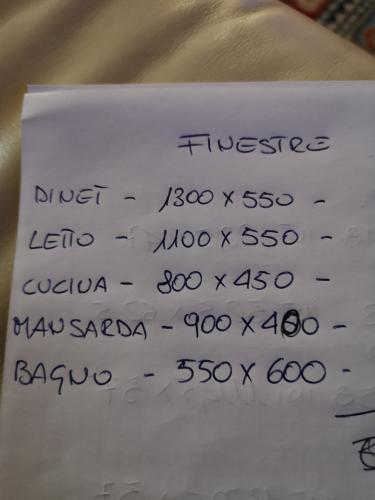 FINESTRE
DINET - 1300 X 550 -
LETTO - 1100 X 550 -
CUCINA - 800 X 450 -
MANSARDA - 900 X 400 -
BAGNO - 550 X 600 -